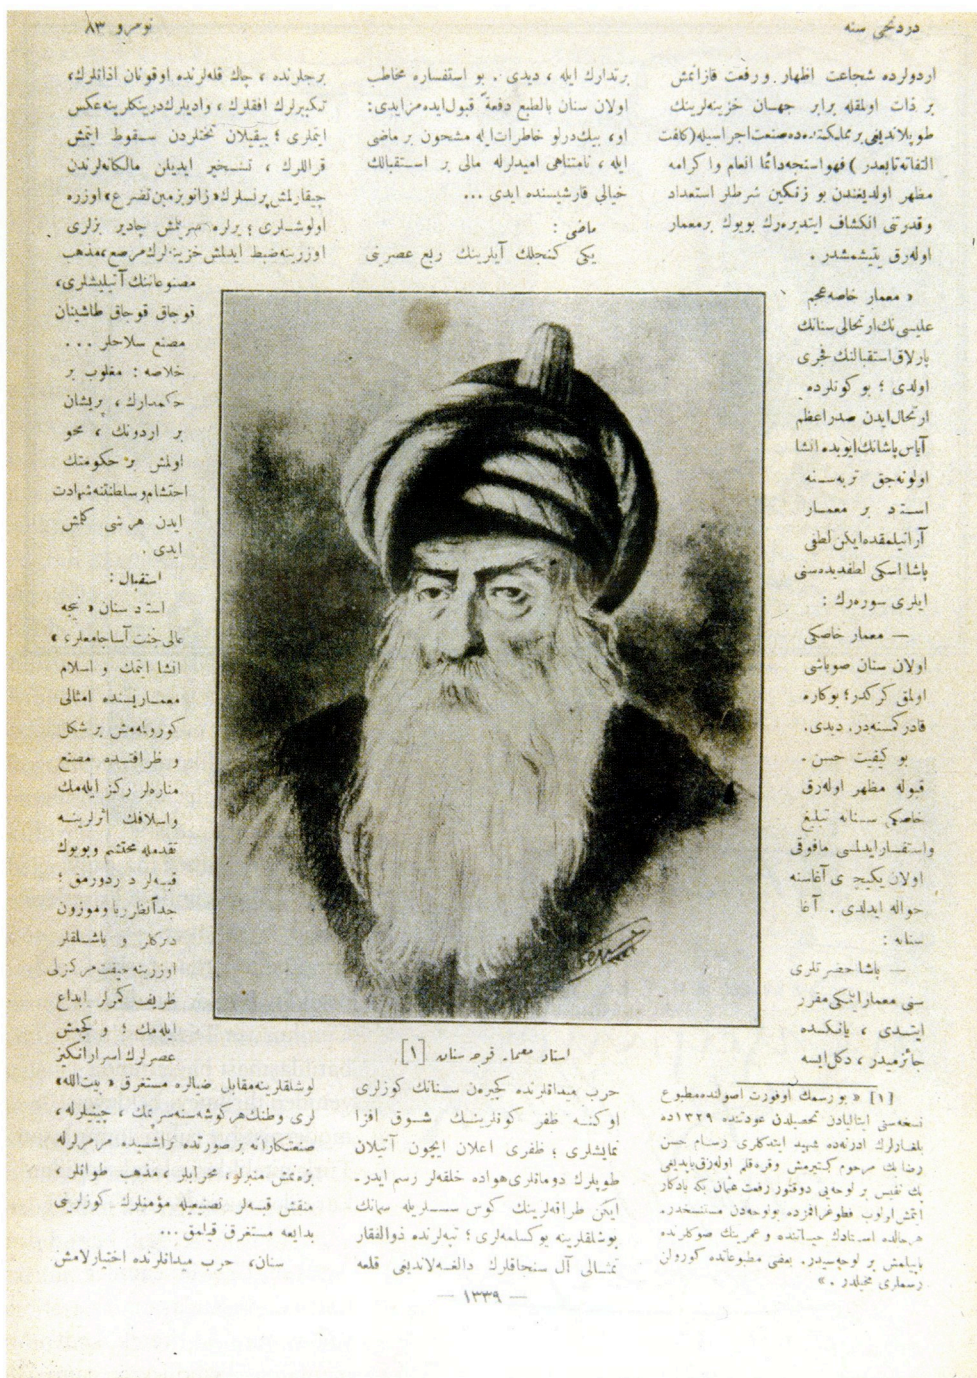 دردنجی سنه
نومرو ٨٣
اردولرده شجاعت اظهار و رفعت قازانمش
بر ذات اولمقله برابر جهان خزینه‌لرینك
طوپلاندیغی بر مملكتده ده صنعت اجراسیله (كافت
التفاته تابعدر) فهواسنجه دائما انعام و اكرامه
مظهر اولدیغندن بو زنكین شرطلر استعداد
و قدرتنی انكشاف ایتدیره‌رك بویوك بر معمار
اوله‌رق یتیشمشدر .
« معمار خاصه عجم
علیسی نك ارتحالی سنانك
پارلاق استقبالنك فجری
اولدی ؛ بو كونلرده
ارتحال ایدن صدر اعظم
آیاس پاشانك ایوبده انشا
اولونه‌جق تربه‌سنه
استاد بر معمار
آرانیلمقده ایكن لطفی
پاشا اسكی لطفدیده‌سنی
ایلری سوره‌رك :
— معمار خاصكی
اولان سنان صوباشی
اولمق كركدر ؛ بو كاره
قادر كمسنه‌در . دیدی .
بو كیفیت حسن
قبوله مظهر اوله‌رق
خاصكی سنانه تبلیغ
و استفسار ایدلمسی مافوقی
اولان یكیچری آغاسنه
حواله ایدلدی . آغا
سنانه :
— پاشا حضرتلری
سنی معمار ایتمكی مقرر
ایتدی ، یانكسده
جائزمیدر ، دكل ایسه
[١] « بو رسمك اوفورت اصولنده مطبوع
نسخه‌سی ایتالیادن تحصیلدن عودتنده ١٣٢٩ ده
بلغارلرك ادرنه‌ده شهید ایتدكلری رسام حسن
رضا بك مرحوم كتیرمش و قره قلم اوله‌رق یاپدیغی
پك نفیس بر لوحه‌یی دوقتور رفعت عثمان بكه یادكار
ایتمش اولوب فطوغرافمزده بو لوحه‌دن مستنسخدر .
هر حالده استادك حیاتنده و عمرینك صوكلرنده
یاپیلمش بر لوحه‌سیدر . بعضی مطبوعاتده كورولن
رسملری مخیلدر . »
برتدارك ایله ، دیدی . بو استفساره مخاطب
اولان سنان بالطبع دفعةً قبول ایده‌مزایدی :
او ، بیك درلو خاطرات ایله مشحون بر ماضی
ایله ، نامتناهی امیدلرله مالی بر استقبالك
خیالی قارشیسنده ایدی ...
ماضی :
یكی كنجلك آیلرینك ربع عصرینی
استاد معمار قوجه سنان [١]
حرب میدانلرنده كچیرەن سنانك كوزلری
اوكنه ظفر كونلرینك شوق افزا
نمایشلری ؛ ظفری اعلان ایچون آتیلان
طوپلرك دومانلری هواده خلقه‌لر رسم ایدر
ایكن طراقه‌لرینك كوس سسلریله سمانك
بوشلقلرینه یوكسلمه‌لری ؛ تپه‌لرنده ذوالفقار
تمثالی آل سنجاقلرك دالغه‌لاندیغی قلعه
برجلرنده ، چاك قله‌لرنده اوقونان اذانلرك ،
تكبیرلرك افقلرك ، وادیلرك درینلكلرینه عكس
ایتملری ؛ ییقیلان تختلردن سقوط ایتمش
قراللرك ، تسخیر ایدیلن مالكانه‌لرندن
چیقارلمش پرنسلرك « زانو بزمین تضرع » اوزره
اولوشلری ؛ یرلره سریلمش چادیر بزلری
اوزرینه ضبط ایدلمش خزینه‌لرك مرصع ، مذهب
مصنوعاتنك آتیلیشلری ،
قوجاق قوجاق طاشینان
مصنع سلاحلر ...
خلاصه : مغلوب بر
حكمدارك ، پریشان
بر اردونك ، محو
اولمش بر حكومتك
احتشام و سلطنتنه شهادت
ایدن هر شی كلمش
ایدی .
استقبال :
استاد سنان « نیجه
عالی جنت آسا جامعلر » ،
انشا ایتمك و اسلام
معماریسنده امثالی
كورولمه‌مش بر شكل
و ظرافتده مصنع
مناره‌لر ركز ایله‌مك
و اسلافك اثرلرینه
تقدمله محتشم و بویوك
قبه‌لر دردورمق ؛
جداً نظرربا و موزون
دركلر و باشلقلر
اوزرینه جیفت مركزلی
ظریف كمرلر ابداع
ایله‌مك ؛ و كچمش
عصرلرك اسرارانكیز
لوشلقلرینه مقابل ضیالره مستغرق « بیت‌الله »
لری وطنك هر كوشه‌سنه سرپمك ، چینیلرله ،
صنعتكارانه بر صورتده تراشیده مرمرلرله
بزه‌نمش منبرلر ، محرابلر ، مذهب طوانلر ،
منقش قبه‌لر تصنیعیله مؤمنلرك كوزلرینی
بدایعه مستغرق قیلمق ...
سنان ، حرب میدانلرنده اختیارلامش
— ١٣٣٩ —